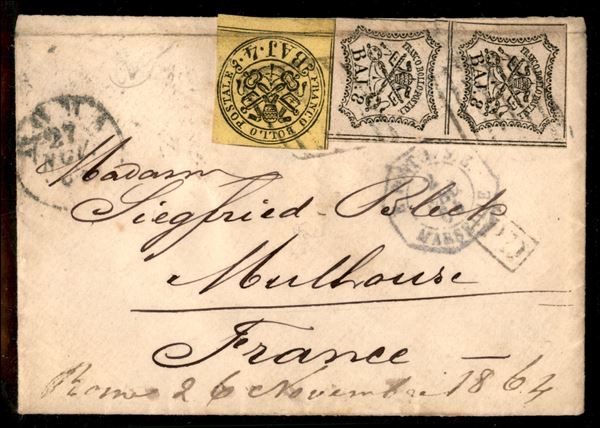 FRANCO BOLLO POSTALE
BAJ. 4.
FRANCO BOLLO POSTALE
BAJ. 8
FRANCO BOLLO POSTALE
BAJ. 8
ROMA
27
NOV
MARSEILLE
Madame
Siegfried-Bleck
Mulhouse
France
Rome 26 Novembre 1864